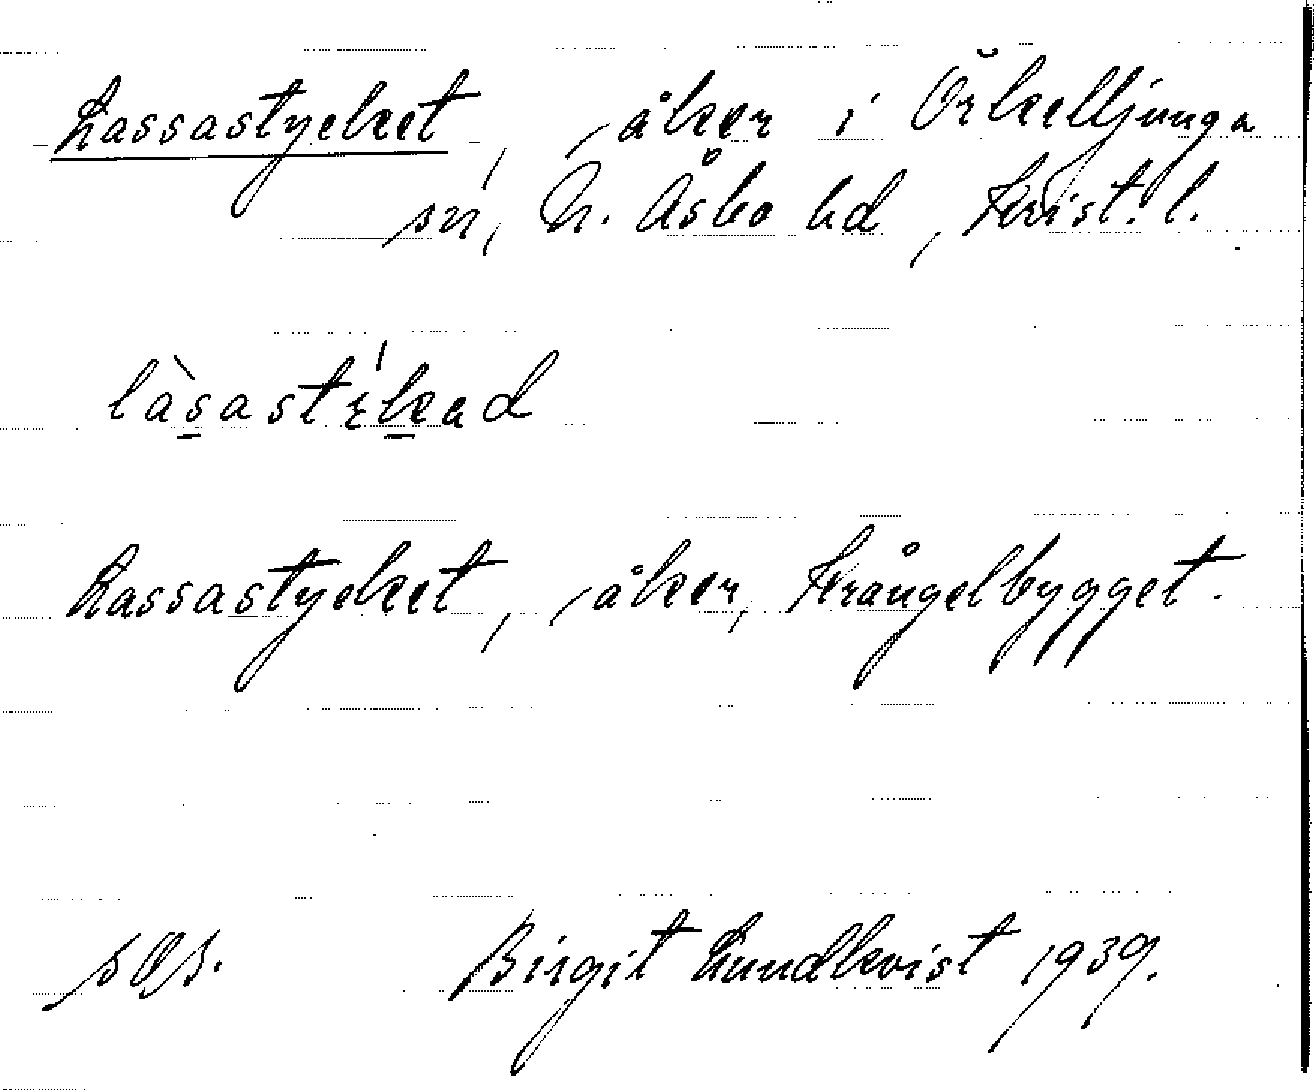 Lassastycket, åker i Örkelljunga
sn, N. Åsbo hd, Krist. l.
làsastýkad
Lassastycket, åker, Krångelbygget.
Birgit Lundkvist 1939.